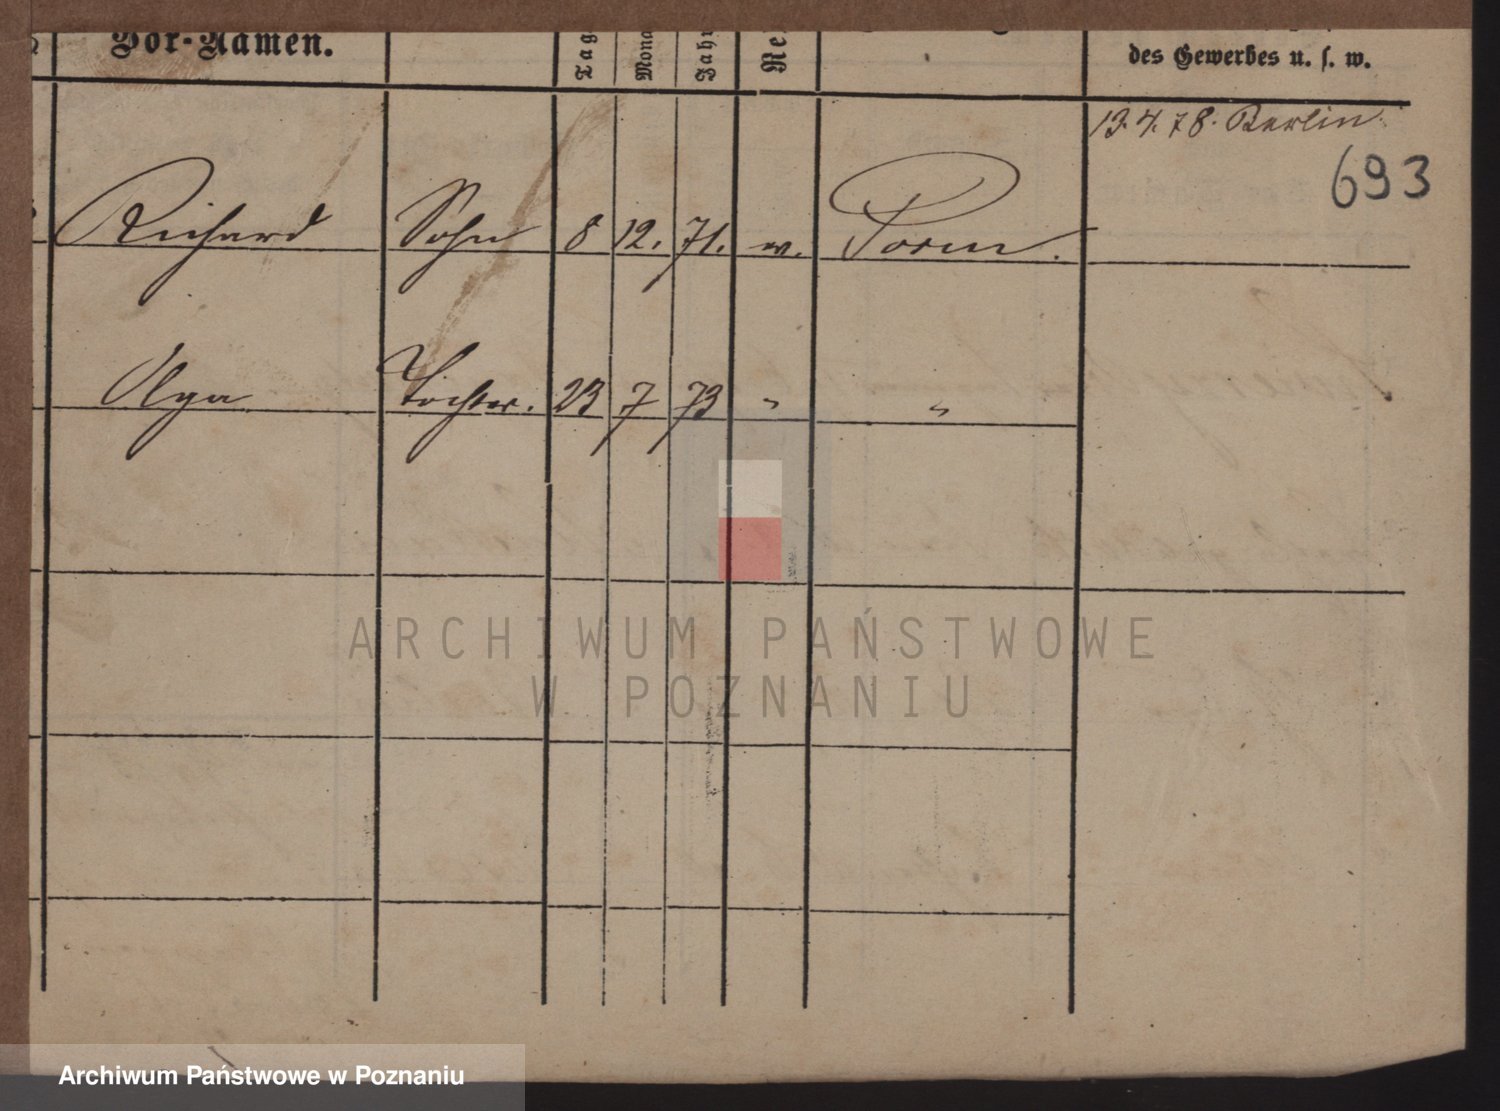 Vor-Namen. Tag Mona Jahr Re des Gewerbes u. s. w.
13.4.78. Berlin
693
Richard Sohn 8 12. 71. Posen.
Olga Tochter. 23 7 73 " "
ARCHIWUM PAŃSTWOWE
W POZNANIU
Archiwum Państwowe w Poznaniu